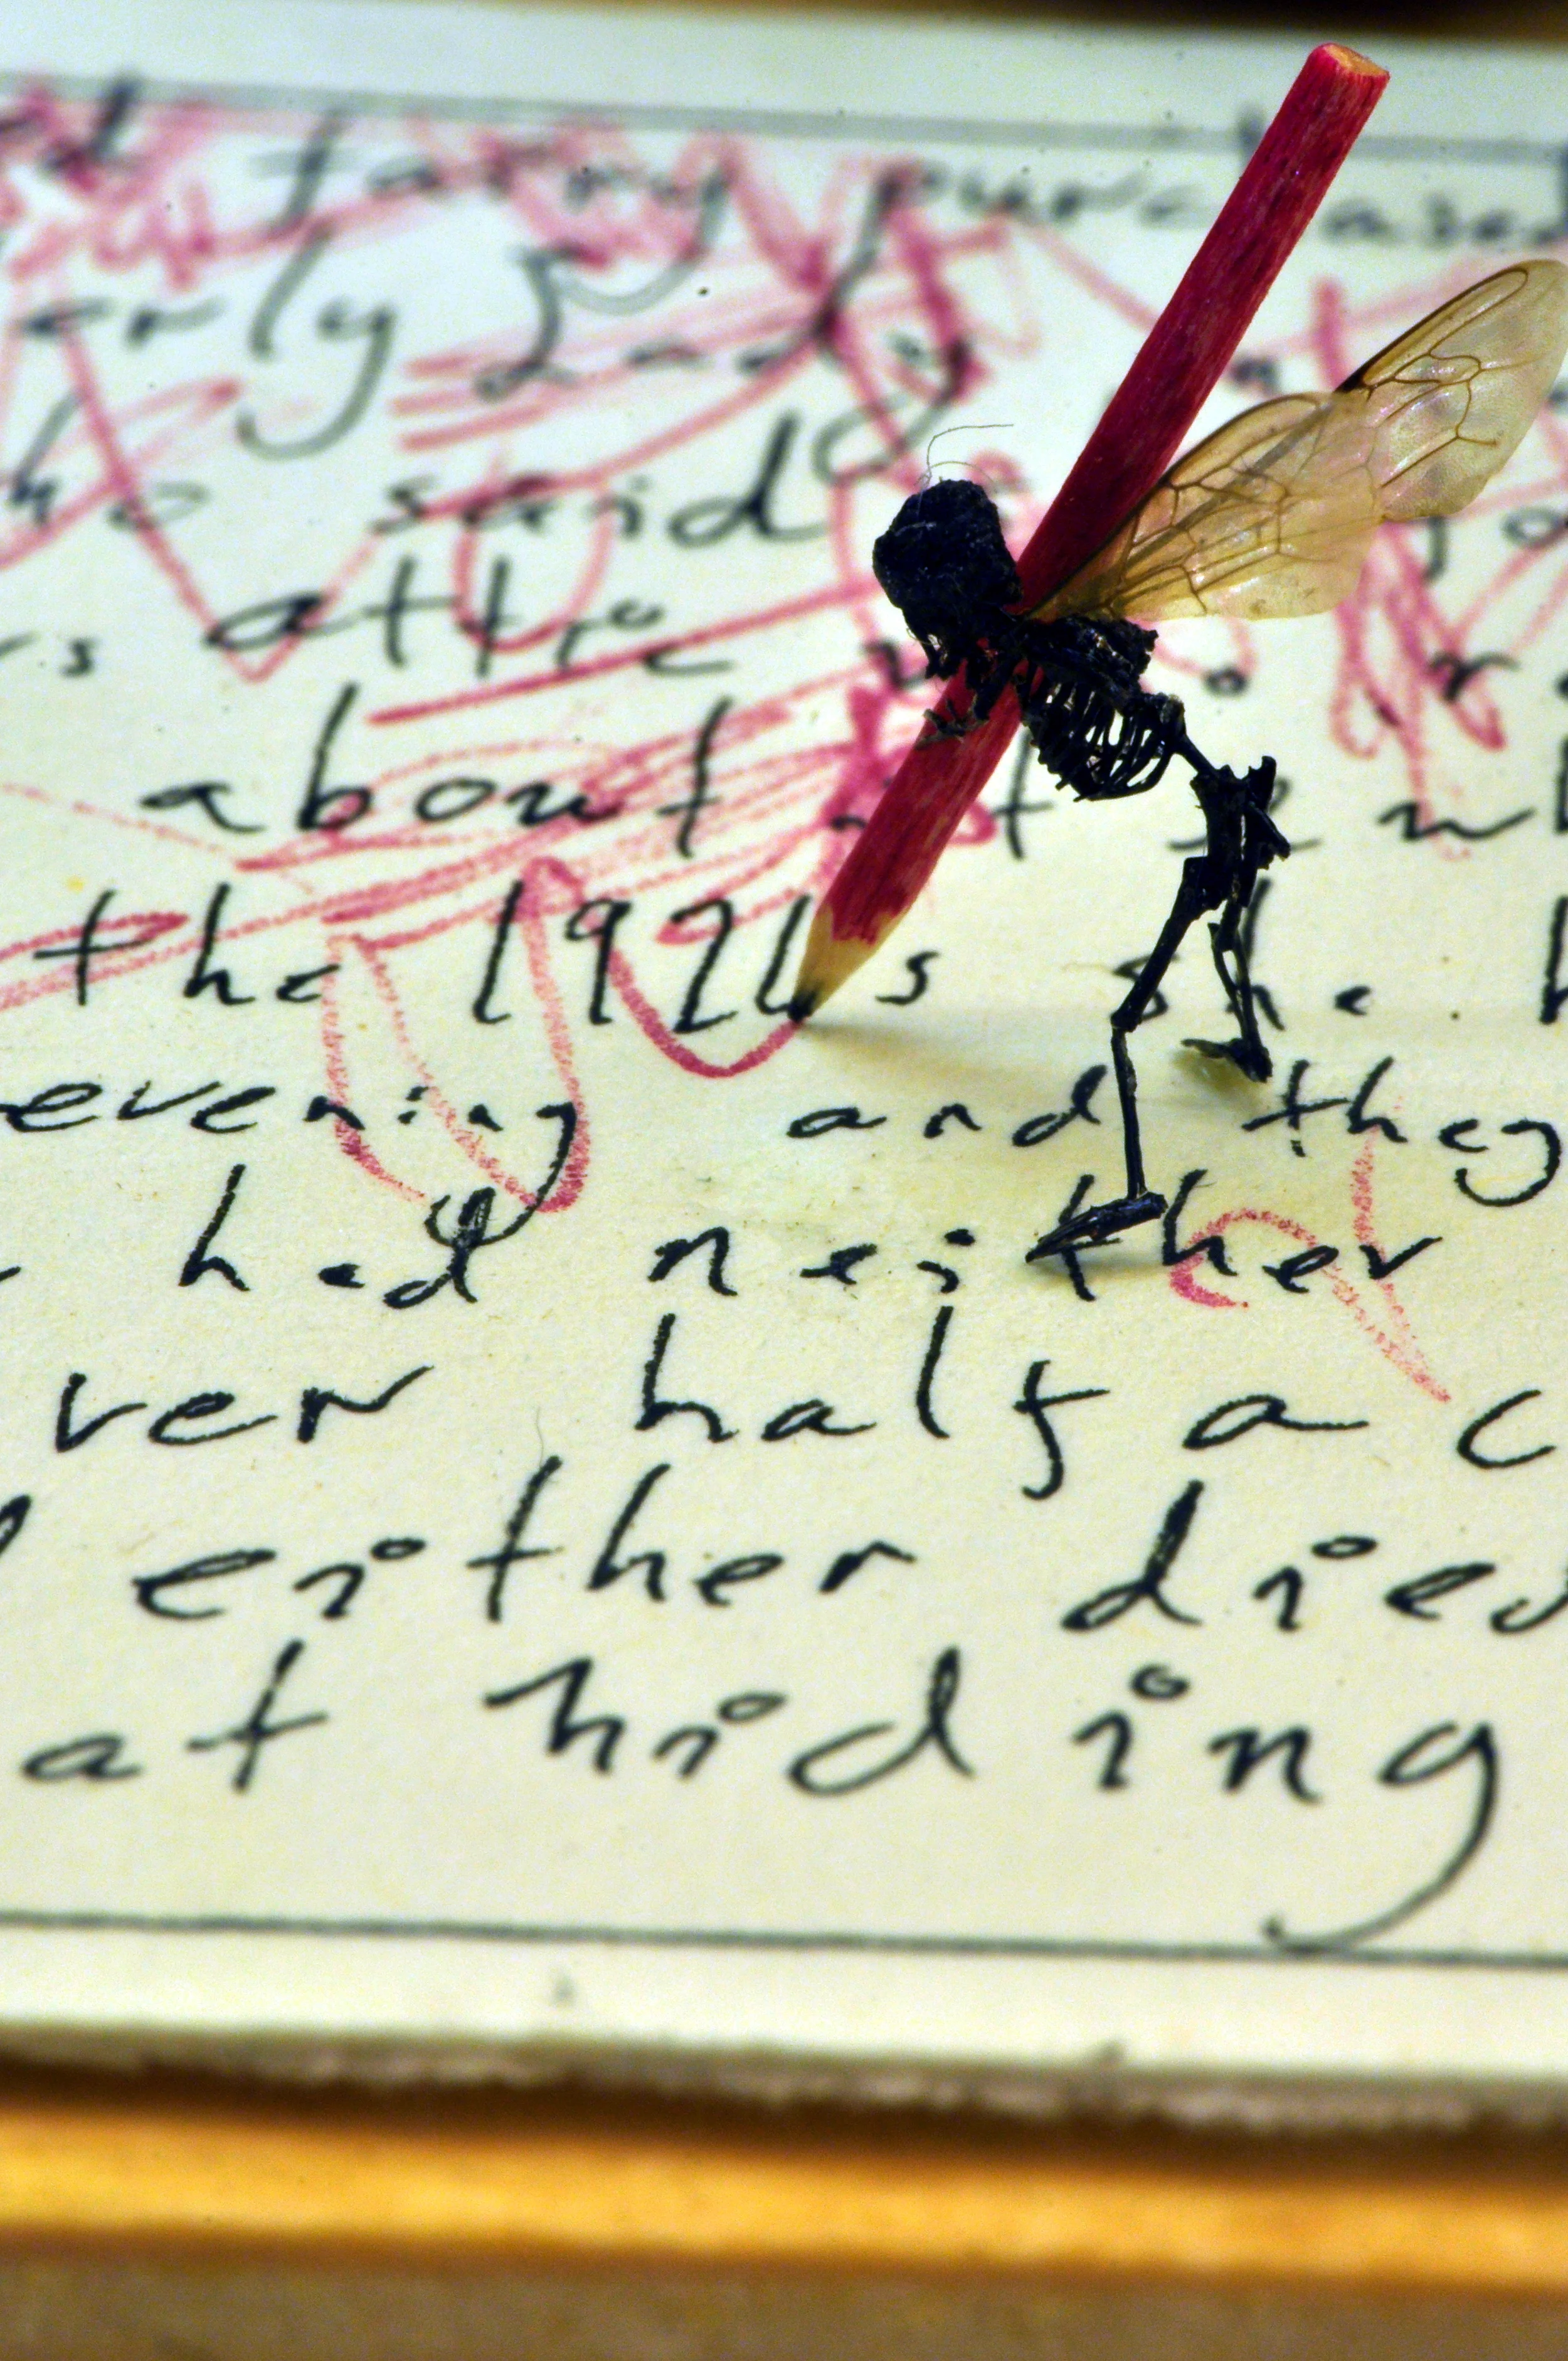 purchased
erly Lady
who said
rs attic
about
the 1920s she
evening and they
had neither
ver half a c
either died
at hiding